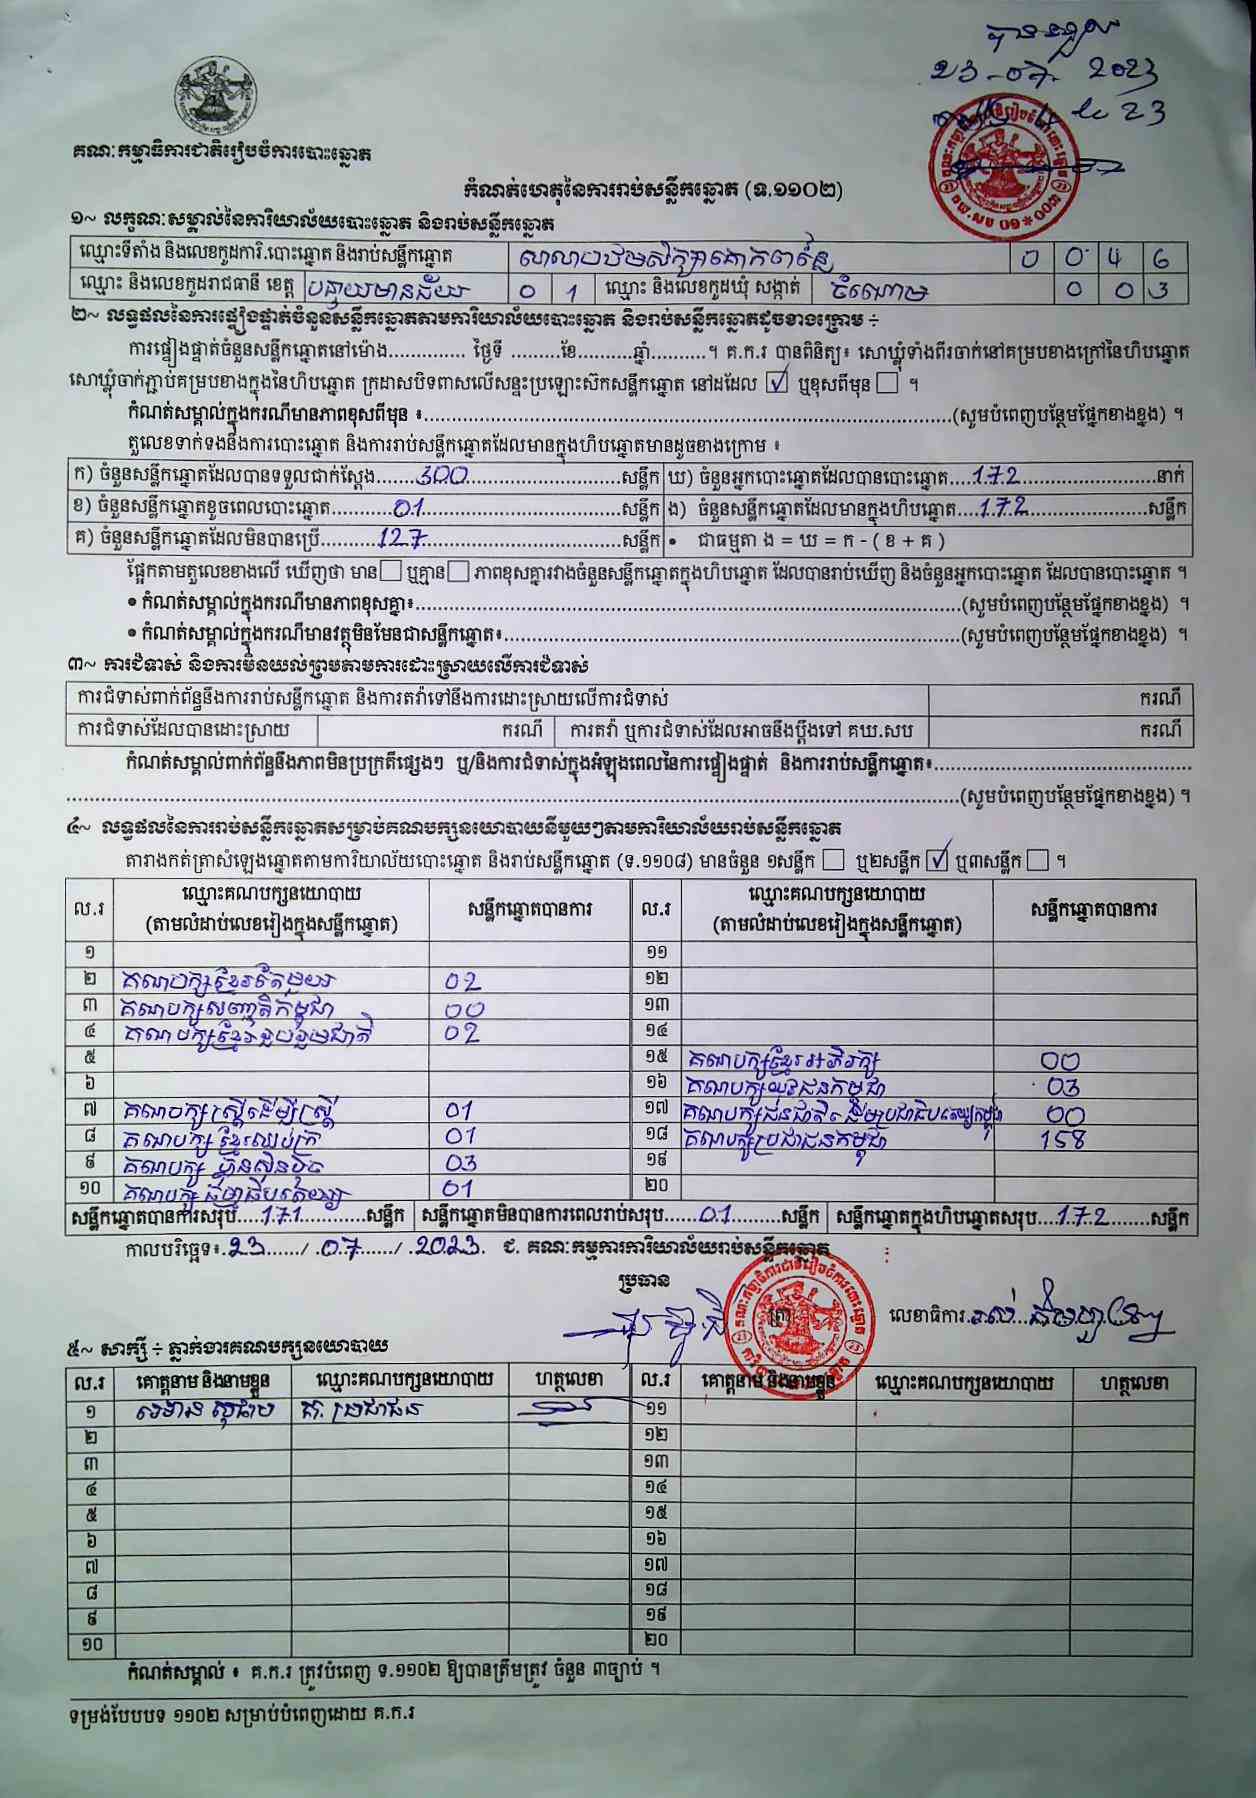 បានទទួល
23-07-2023
គណៈកម្មាធិការជាតិរៀបចំការបោះឆ្នោត
កំណត់ហេតុនៃការរាប់សន្លឹកឆ្នោត (ទ.១១០២)
១~ លក្ខណៈសម្គាល់នៃការិយាល័យបោះឆ្នោត និងរាប់សន្លឹកឆ្នោត
ឈ្មោះទីតាំង និងលេខកូដការិ.បោះឆ្នោត និងរាប់សន្លឹកឆ្នោត សាលាបឋមសិក្សាគោកពន្លៃ 0 0 4 6
ឈ្មោះ និងលេខកូដរាជធានី ខេត្ត បន្ទាយមានជ័យ 0 1 ឈ្មោះ និងលេខកូដឃុំ សង្កាត់ ចំណោម 0 0 3
២~ លទ្ធផលនៃការផ្ទៀងផ្ទាត់ចំនួនសន្លឹកឆ្នោតតាមការិយាល័យបោះឆ្នោត និងរាប់សន្លឹកឆ្នោតដូចខាងក្រោម ÷
ការផ្ទៀងផ្ទាត់ចំនួនសន្លឹកឆ្នោតនៅម៉ោង.............. ថ្ងៃទី .........ខែ..........ឆ្នាំ..........។ គ.ក.រ បានពិនិត្យ៖ សោឃ្លុំទាំងពីរចាក់នៅគម្របខាងក្រៅនៃហិបឆ្នោត
សោឃ្លុំចាក់ភ្ជាប់គម្របខាងក្នុងនៃហិបឆ្នោត ក្រដាសបិទពាសលើសន្ទះប្រឡោះស៊កសន្លឹកឆ្នោត នៅដដែល ☑ ឬខុសពីមុន ☐ ។
កំណត់សម្គាល់ក្នុងករណីមានភាពខុសពីមុន ៖..........(សូមបំពេញបន្ថែមផ្នែកខាងខ្នង) ។
តួលេខទាក់ទងនឹងការបោះឆ្នោត និងការរាប់សន្លឹកឆ្នោតដែលមានក្នុងហិបឆ្នោតមានដូចខាងក្រោម ៖
ក) ចំនួនសន្លឹកឆ្នោតដែលបានទទួលជាក់ស្តែង.......300..........សន្លឹក ឃ) ចំនួនអ្នកបោះឆ្នោតដែលបានបោះឆ្នោត....172..........នាក់
ខ) ចំនួនសន្លឹកឆ្នោតខូចពេលបោះឆ្នោត..........01..........សន្លឹក ង) ចំនួនសន្លឹកឆ្នោតដែលមានក្នុងហិបឆ្នោត....172..........សន្លឹក
គ) ចំនួនសន្លឹកឆ្នោតដែលមិនបានប្រើ..........127..........សន្លឹក • ជាធម្មតា ង = ឃ = ក - ( ខ + គ )
ផ្អែកតាមតួលេខខាងលើ ឃើញថា មាន ☐ ឬគ្មាន ☐ ភាពខុសគ្នារវាងចំនួនសន្លឹកឆ្នោតក្នុងហិបឆ្នោត ដែលបានរាប់ឃើញ និងចំនួនអ្នកបោះឆ្នោត ដែលបានបោះឆ្នោត ។
• កំណត់សម្គាល់ក្នុងករណីមានភាពខុសគ្នា៖..........(សូមបំពេញបន្ថែមផ្នែកខាងខ្នង) ។
• កំណត់សម្គាល់ក្នុងករណីមានវត្ថុមិនមែនជាសន្លឹកឆ្នោត៖..........(សូមបំពេញបន្ថែមផ្នែកខាងខ្នង) ។
៣~ ការជំទាស់ និងការមិនយល់ព្រមតាមការដោះស្រាយលើការជំទាស់
ការជំទាស់ពាក់ព័ន្ធនឹងការរាប់សន្លឹកឆ្នោត និងការតវ៉ាទៅនឹងការដោះស្រាយលើការជំទាស់ ករណី
ការជំទាស់ដែលបានដោះស្រាយ ករណី ការតវ៉ា ឬការជំទាស់ដែលអាចនឹងប្តឹងទៅ គឃ.សប ករណី
កំណត់សម្គាល់ពាក់ព័ន្ធនឹងភាពមិនប្រក្រតីផ្សេងៗ ឬ/និងការជំទាស់ក្នុងអំឡុងពេលនៃការផ្ទៀងផ្ទាត់ និងការរាប់សន្លឹកឆ្នោត៖..........
..........(សូមបំពេញបន្ថែមផ្នែកខាងខ្នង) ។
៤~ លទ្ធផលនៃការរាប់សន្លឹកឆ្នោតសម្រាប់គណបក្សនយោបាយនីមួយៗតាមការិយាល័យរាប់សន្លឹកឆ្នោត
តារាងកត់ត្រាសំឡេងឆ្នោតតាមការិយាល័យបោះឆ្នោត និងរាប់សន្លឹកឆ្នោត (ទ.១១០៨) មានចំនួន ១សន្លឹក ☐ ឬ២សន្លឹក ☑ ឬ៣សន្លឹក ☐ ។
ល.រ ឈ្មោះគណបក្សនយោបាយ (តាមលំដាប់លេខរៀងក្នុងសន្លឹកឆ្នោត) សន្លឹកឆ្នោតបានការ ល.រ ឈ្មោះគណបក្សនយោបាយ (តាមលំដាប់លេខរៀងក្នុងសន្លឹកឆ្នោត) សន្លឹកឆ្នោតបានការ
១ ១១
២ គណបក្សខ្មែរតែមួយ 02 ១២
៣ គណបក្សសញ្ជាតិកម្ពុជា 00 ១៣
៤ គណបក្សខ្មែររួបរួមជាតិ 02 ១៤
៥ ១៥ គណបក្សខ្មែរអភិរក្ស 00
៦ ១៦ គណបក្សយុវជនកម្ពុជា 03
៧ គណបក្សស្ត្រីដើម្បីស្ត្រី 01 ១៧ គណបក្សជនជាតិដើមប្រជាធិបតេយ្យកម្ពុជា 00
៨ គណបក្សខ្មែរឈប់ក្រ 01 ១៨ គណបក្សប្រជាជនកម្ពុជា 158
៩ គណបក្ស ហ៊្វុនស៊ិនប៉ិច 03 ១៩
១០ គណបក្ស ធម្មាធិបតេយ្យ 01 ២០
សន្លឹកឆ្នោតបានការសរុប....171..........សន្លឹក សន្លឹកឆ្នោតមិនបានការពេលរាប់សរុប......01.........សន្លឹក សន្លឹកឆ្នោតក្នុងហិបឆ្នោតសរុប...172.......សន្លឹក
កាលបរិច្ឆេទ៖.23....../.07....../.2023. ជ. គណៈកម្មការការិយាល័យរាប់សន្លឹកឆ្នោត
ប្រធាន
(ត្រា) លេខាធិការ
៥~ សាក្សី ÷ ភ្នាក់ងារគណបក្សនយោបាយ
ល.រ គោត្តនាម និងនាមខ្លួន ឈ្មោះគណបក្សនយោបាយ ហត្ថលេខា ល.រ គោត្តនាម និងនាមខ្លួន ឈ្មោះគណបក្សនយោបាយ ហត្ថលេខា
១ គ. ប្រជាជន ១១
២ ១២
៣ ១៣
៤ ១៤
៥ ១៥
៦ ១៦
៧ ១៧
៨ ១៨
៩ ១៩
១០ ២០
កំណត់សម្គាល់ ៖ គ.ក.រ ត្រូវបំពេញ ទ.១១០២ ឱ្យបានត្រឹមត្រូវ ចំនួន ៣ច្បាប់ ។
ទម្រង់បែបបទ ១១០២ សម្រាប់បំពេញដោយ គ.ក.រ